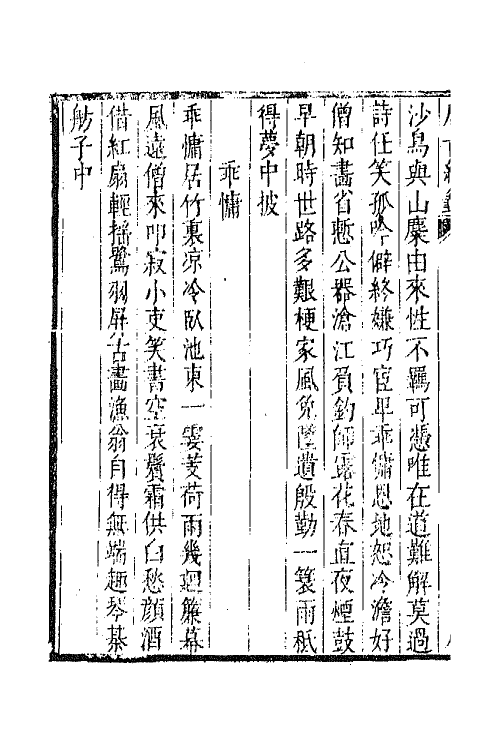 沙鳥與山麋由來性不羈可憑唯在道難解莫過
詩任笑孤吟僻終嫌巧宦卑乖慵恩地恕冷澹好
僧知畫省慙公器滄江負釣師露花春直夜煙鼓
早朝時世路多艱梗家風免墜遺殷勤一簑雨秖
得夢中披
乖慵
乖慵居竹裏凉冷臥池東一霎芰荷雨幾迴簾幕
風遠僧來叩寂小吏笑書空衰鬢霜供白愁顏酒
借紅扇輕搖鷺羽屏古畵漁翁自得無端趣琴棊
舫子中